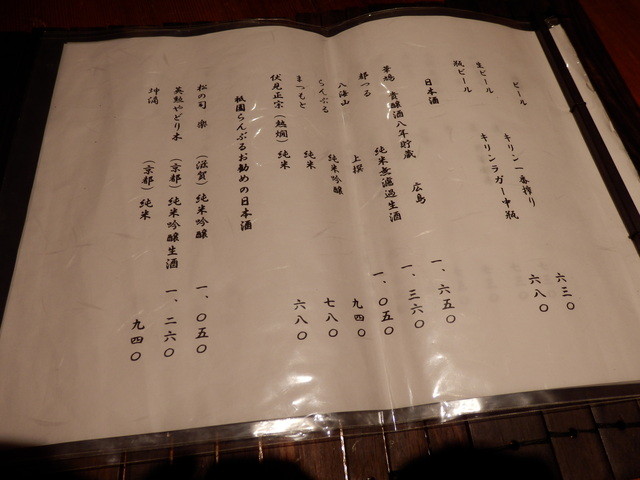 ビール
生ビール キリン一番搾り 六三〇
瓶ビール キリンラガー中瓶 六八〇
日本酒
華鳩 貴醸酒八年貯蔵 広島 一、六五〇
都つる 純米無濾過生酒 一、三六〇
八海山 上撰 一、〇五〇
らんぶる 純米吟醸 九四〇
まつもと 純米 七八〇
伏見正宗(熱燗) 純米 六八〇
祇園らんぶるお勧めの日本酒
松の司 楽 (滋賀) 純米吟醸 一、〇五〇
英勲やどり木 (京都) 純米吟醸生酒 一、二六〇
坤滴 (京都) 純米 九四〇